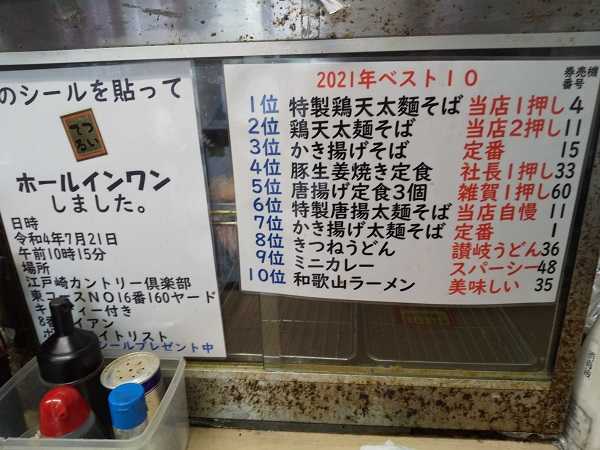 のシールを貼って
ついてる
ホールインワン
しました。
日時
令和4年7月21日
午前10時15分
場所
江戸崎カントリー倶楽部
東コースNO16番160ヤード
キャディー付き
8番アイアン
シールプレゼント中
2021年ベスト10
券売機
番号
1位 特製鶏天太麺そば 当店1押し 4
2位 鶏天太麺そば 当店2押し 11
3位 かき揚げそば 定番 15
4位 豚生姜焼き定食 社長1押し 33
5位 唐揚げ定食3個 雑賀1押し 60
6位 特製唐揚太麺そば 当店自慢 11
7位 かき揚げ太麺そば 定番 1
8位 きつねうどん 讃岐うどん 36
9位 ミニカレー スパーシー 48
10位 和歌山ラーメン 美味しい 35